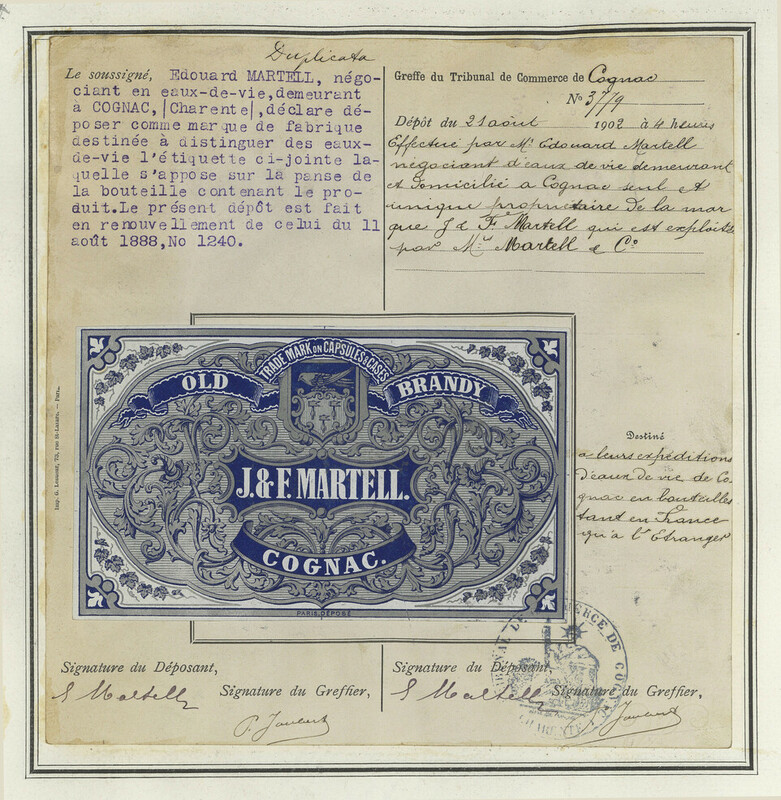 Duplicata
Le soussigné, Edouard MARTELL, négo-
ciant en eaux-de-vie,demeurant
à COGNAC,|Charente|,déclare dé-
poser comme marque de fabrique
destinée à distinguer des eaux-
de-vie l'étiquette ci-jointe la-
quelle s'appose sur la panse de
la bouteille contenant le pro-
duit.Le présent dépôt est fait
en renouvellement de celui du 11
août 1888,No 1240.
Greffe du Tribunal de Commerce de Cognac
No 3779
Dépôt du 21 août 1902 à 4 heures
Effectué par Mr Edouard Martell
négociant d'eaux de vie demeurant
et domicilié à Cognac seul et
unique propriétaire de la mar
que J & F Martell qui est exploitée
par Mrs Martell & Co
TRADE MARK ON CAPSULES & CASES
OLD BRANDY
J. & F. MARTELL.
COGNAC.
PARIS. DÉPOSÉ
Imp. G. Lemoult, 73, rue St-Lazare. — Paris.
Destiné
à leurs expéditions
d'eaux de vie de Co-
gnac en bouteilles
tant en France
qu'à l'Etranger
Signature du Déposant,
E Martell
Signature du Greffier,
Signature du Déposant,
E Martell
Signature du Greffier,
COMMERCE DE
CHARENTE